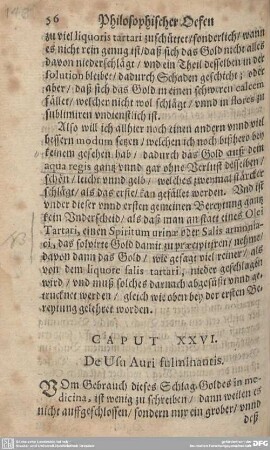 56 Philosophischer Oefen
zu viel liquoris tartari zuschüttet/sonderlich/wann
es nicht rein genug ist/daß sich das Gold nicht alles
davon niederschlägt/vnd ein Theil desselben in der
solution bleibet/dadurch Schaden geschicht; oder
aber/daß sich das Gold in einen schweren calcem
fället/welcher nicht wol schlägt/vnnd in flores zu
sublimiren vndienstlich ist.
Also will ich allhier noch einen andern vnnd viel
bessern modum setzen/welchen ich noch bißhero bey
keinem gesehen hab/dadurch das Gold auß dem
aqua regis gantz vnnd gar ohne Verlust desselben/
schön/leicht vnnd gelb/welches zweymal stärcker
schlägt/als das erste/ gefället werden. Vnd ist
vnder dieser vnnd ersten gemeinen Bereytung gantz
kein Vnderscheid/als daß man an statt eines Olei
Tartari, einen Spiritum urinæ oder Salis armonia-
ci, das solvirte Gold damit zu præcipitiren/nehme/
davon dann das Gold/wie gesagt viel reiner/als
von dem liquore salis tartari, nieder geschlagen
wird/vnd muß solches darnach abgesüst vnnd ge-
trucknet werden/gleich wie oben bey der ersten Be-
reytung gelehret worden.
CAPUT XXVI.
De Usu Auri fulminantis.
VOm Gebrauch dieses Schlag-Goldes in me-
dicina, ist wenig zu schreiben/dann weilen es
nicht auffgeschlossen/sondern nur ein grober/vnnd
deß